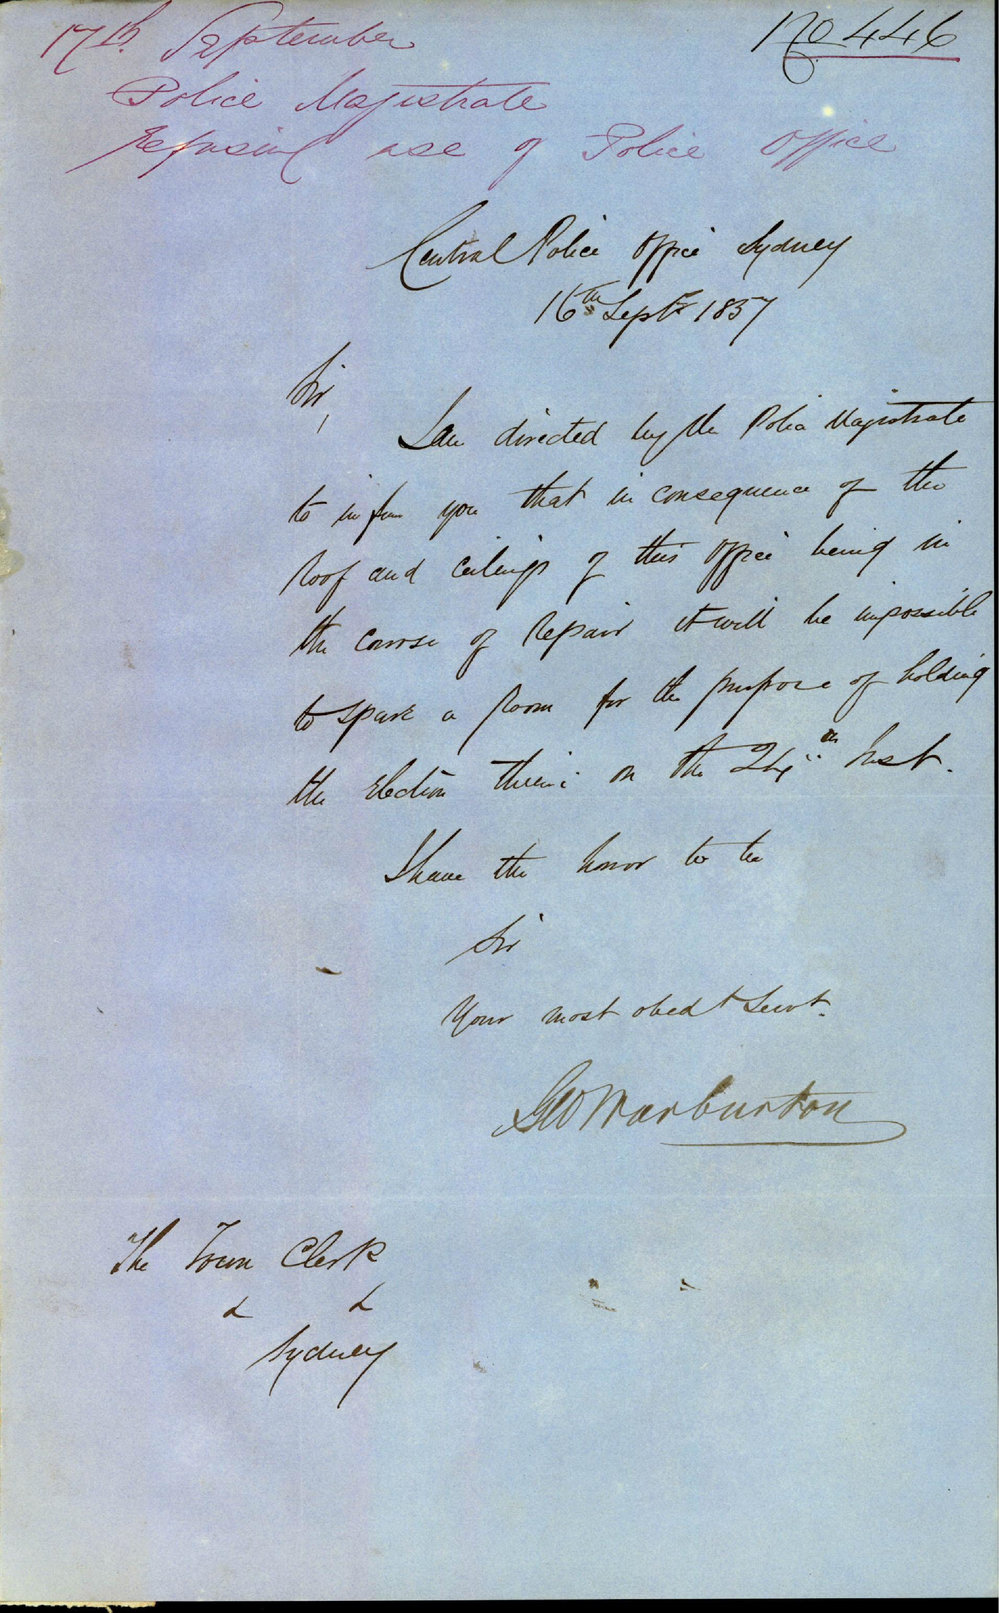 17th September
No 446
Police Magistrate
Refusing use of Police Office
Central Police Office Sydney
16th Septr 1857
Sir,
I am directed by the Police Magistrate
to inform you that in consequence of the
Roof and Ceilings of this Office being in
the course of Repair it will be impossible
to spare a Room for the purpose of holding
the Election therein on the 24th Inst.
I have the honor to be
Sir
Your most obedt Servt.
Geo Warburton
The Town Clerk
& &
Sydney